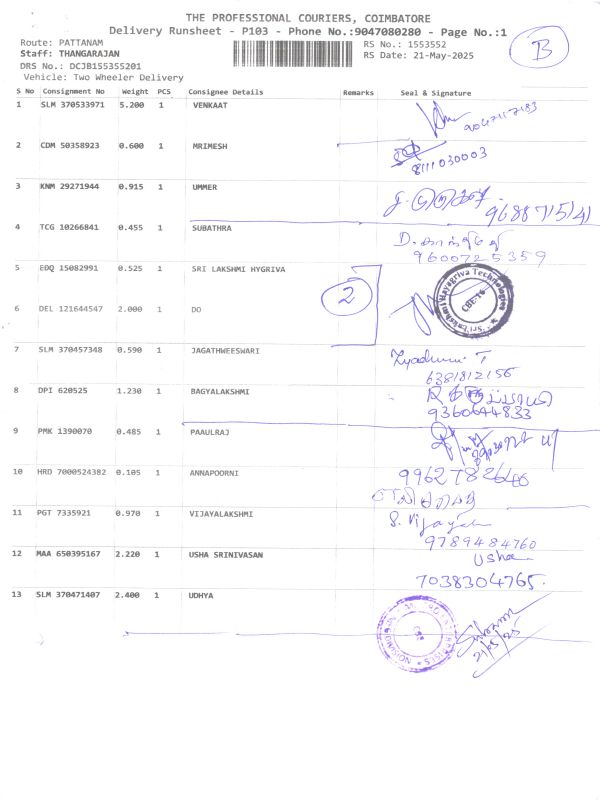 THE PROFESSIONAL COURIERS, COIMBATORE
Delivery Runsheet - P103 - Phone No.:9047080280 - Page No.:1
B
Route: PATTANAM
RS No.: 1553552
Staff: THANGARAJAN
RS Date: 21-May-2025
DRS No.: DCJB155355201
Vehicle: Two Wheeler Delivery
S No Consignment No Weight PCS Consignee Details Remarks Seal & Signature
1 SLM 370533971 5.200 1 VENKAAT
2 CDM 50358923 0.600 1 MRIMESH
8111030003
3 KNM 29271944 0.915 1 UMMER
4 TCG 10266841 0.455 1 SUBATHRA
9600725359
5 EDQ 15082991 0.525 1 SRI LAKSHMI HYGRIVA
2
Sri Lakshmi Hayagriva Technologies
CBE-16
6 DEL 121644547 2.000 1 DO
7 SLM 370457348 0.590 1 JAGATHWEESWARI
6381812156
8 DPI 620525 1.230 1 BAGYALAKSHMI
9360644833
9 PMK 1390070 0.485 1 PAAULRAJ
10 HRD 7000524382 0.105 1 ANNAPOORNI
11 PGT 7335921 0.970 1 VIJAYALAKSHMI
9789484760
12 MAA 650395167 2.220 1 USHA SRINIVASAN
Usha
7038304765.
13 SLM 370471407 2.400 1 UDHYA
21/05/25